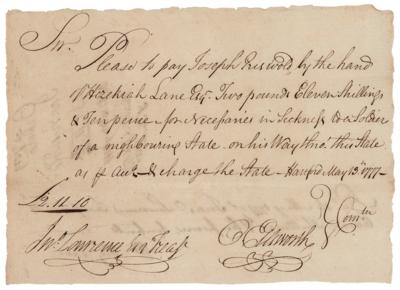 Sir, Please to pay Joseph Griswold by the hand
of Hezekiah Lane Esqr. Two pounds Eleven Shillings
& Ten pence for Necessaries in Sickness to a Soldier
of a neighbouring State on his Way thro' this State
as pr acct. & charge the State - Hartford May 13th 1777 -
£2.11.10
Jno. Lawrence Esqr Treasr
O Ellsworth } Comtee